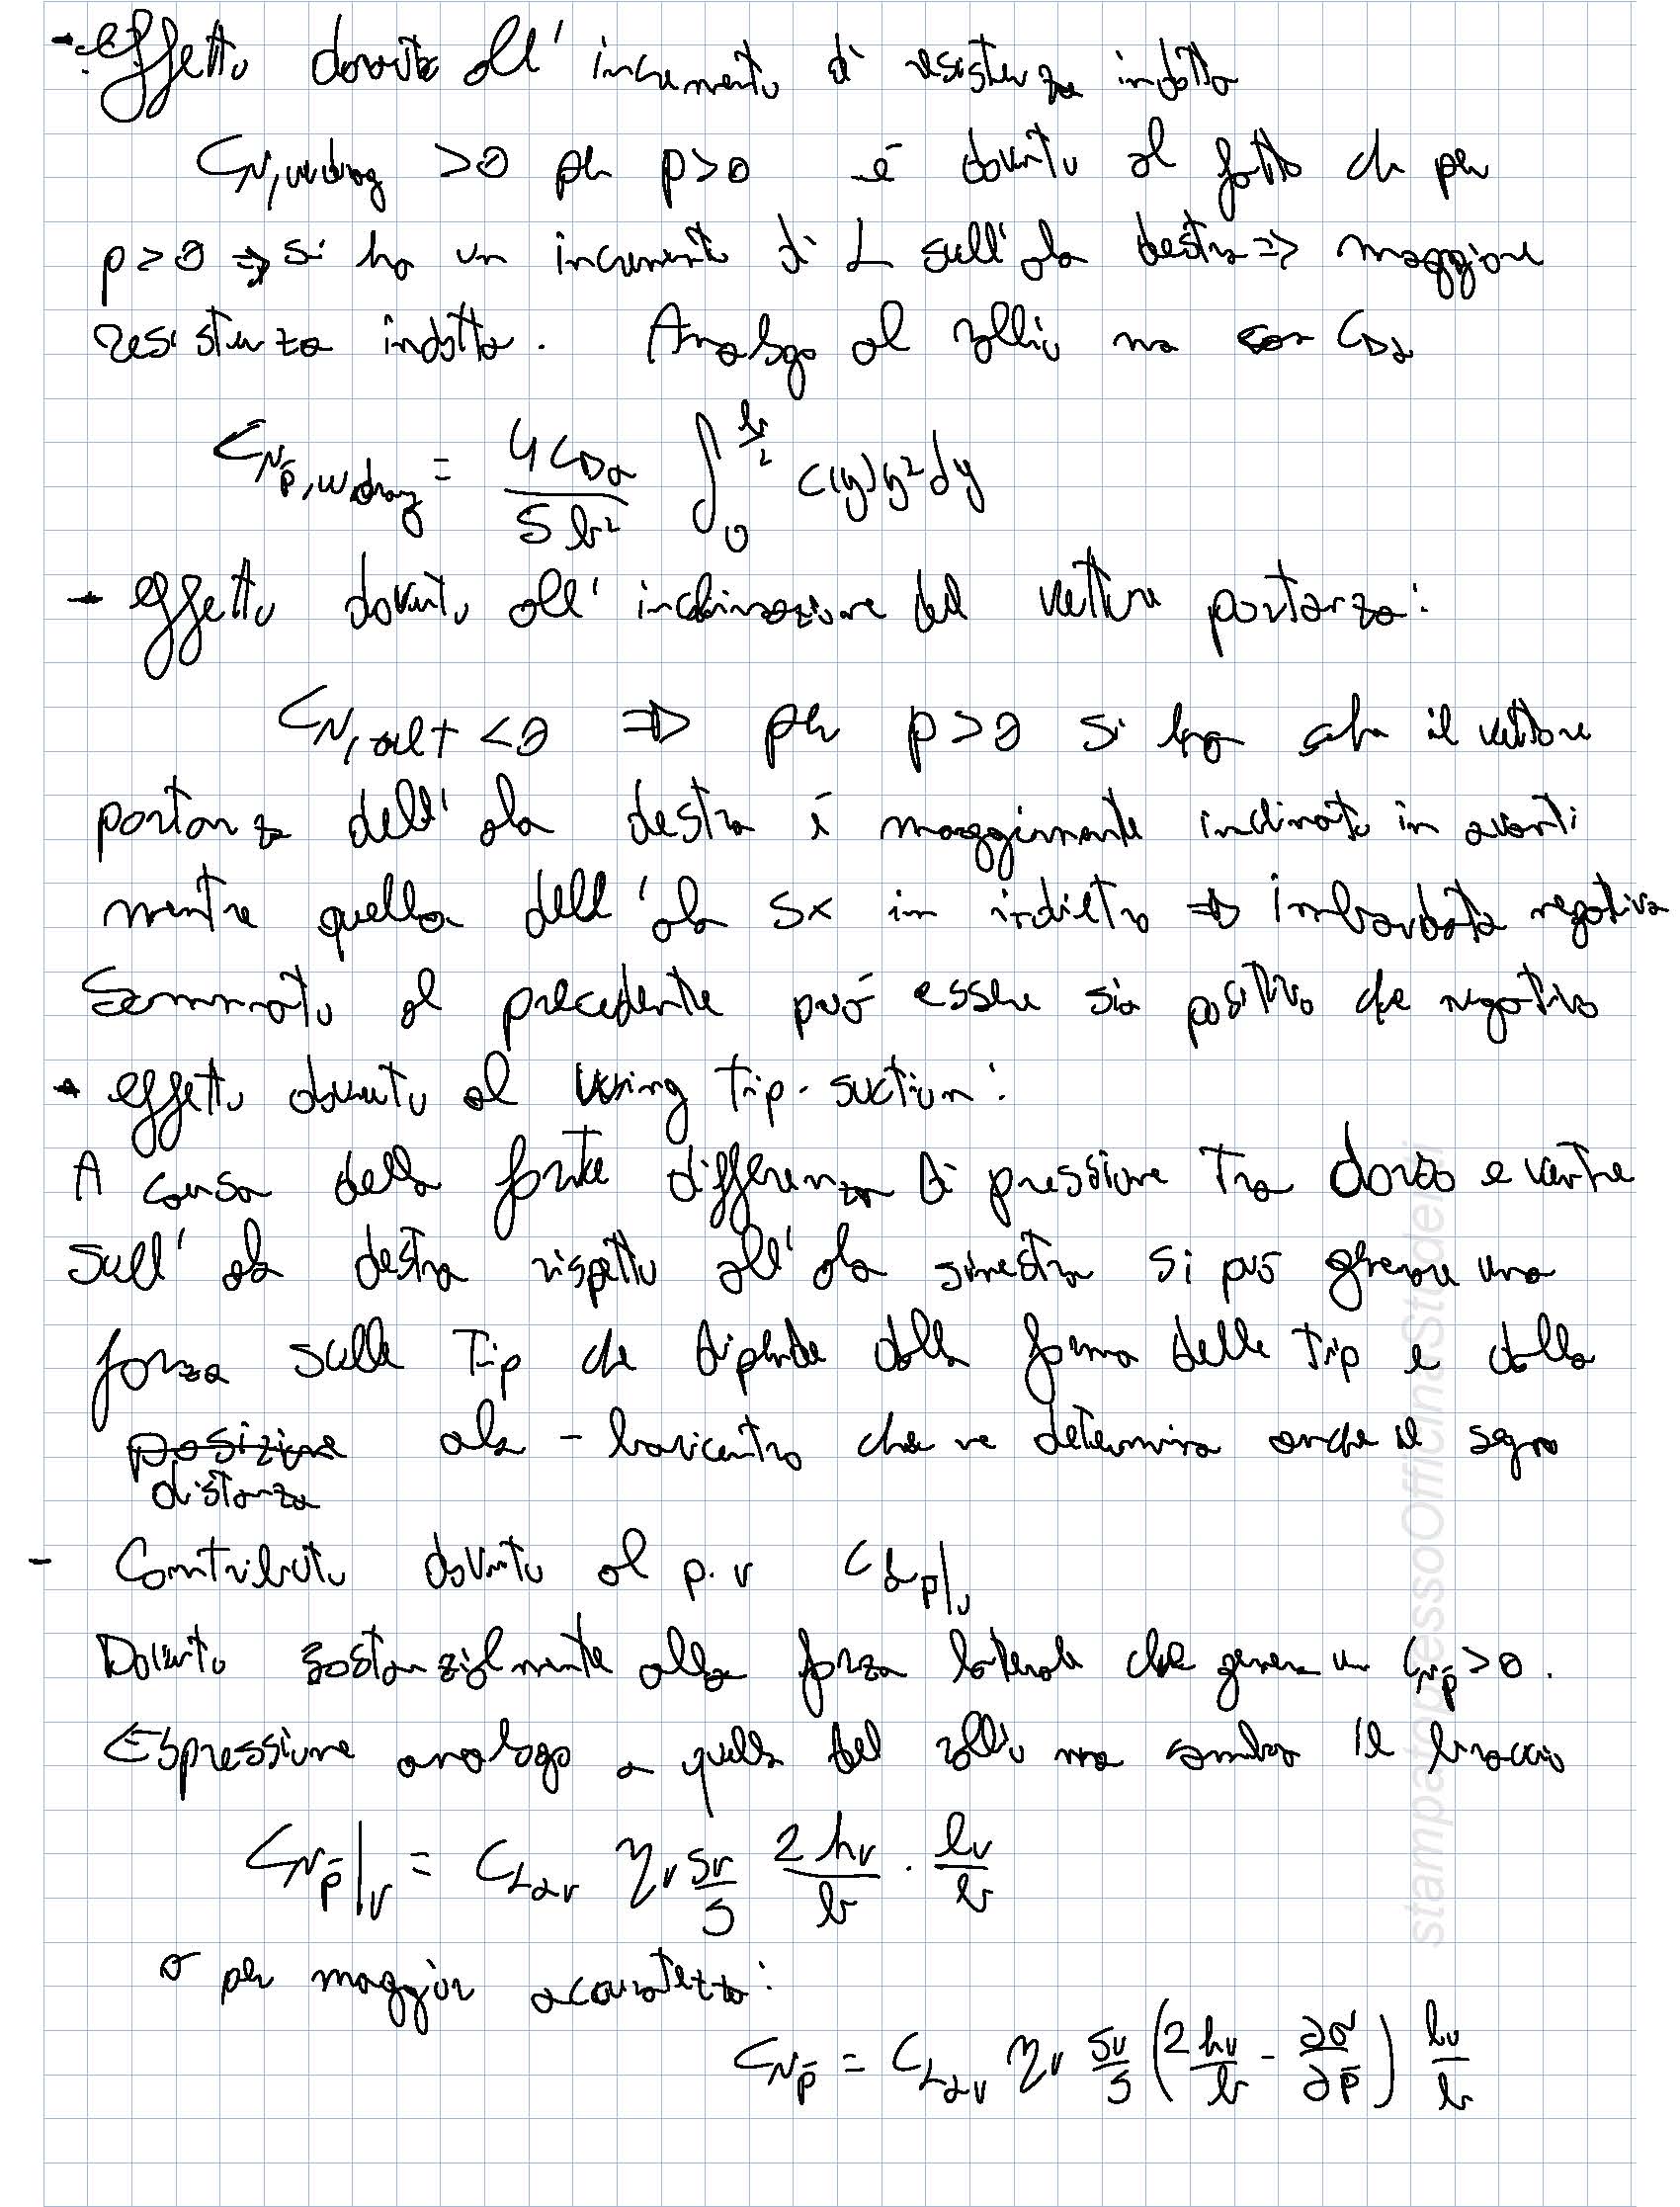 - effetto dovuto all' incremento di resistenza indotta
C_{N,w,drag} > 0 per p > 0 è dovuto al fatto che per
p > 0 ⇒ si ha un incremento di L sull'ala destra => maggiore
resistenza indotta. Analogo al rollio ma con C_{Dα}
C_{N_{\bar{p}},w,drag} = \frac{4 C_{Dα}}{S b²} ∫_0^{b/2} c(y) y² dy
- effetto dovuto all' inclinazione del vettore portanza:
C_{N,tilt} < 0 ⇒ per p > 0 si ha che il vettore
portanza dell' ala destra è maggiormente inclinato in avanti
mentre quella dell'ala sx in indietro ⇒ imbardata negativa
Sommato al precedente può essere sia positivo che negativo
- effetto dovuto al Wing tip-suction:
A causa della forte differenza di pressione tra dorso e ventre
sull' ala destra rispetto all' ala sinistra si può generare una
forza sulle Tip che dipende dalla forma delle tip e dalla
posizione ala - baricentro che ne determina anche il segno
distanza
- Contributo dovuto al p.v C_{L_{\bar{p}}}|_v
Dovuto sostanzialmente alla forza laterale che genera un C_{N_{\bar{p}}} > 0.
Espressione analoga a quella del rollio ma cambia il braccio
C_{N_{\bar{p}}}|_v = C_{Lαv} η_v \frac{S_v}{S} \frac{2 h_v}{b} · \frac{l_v}{b}
o per maggior accuratezza:
C_{N_{\bar{p}}} = C_{Lαv} η_v \frac{S_v}{S} (\frac{2 h_v}{b} - \frac{∂σ}{∂\bar{p}}) \frac{l_v}{b}
stampatopressoOfficinaStudenti